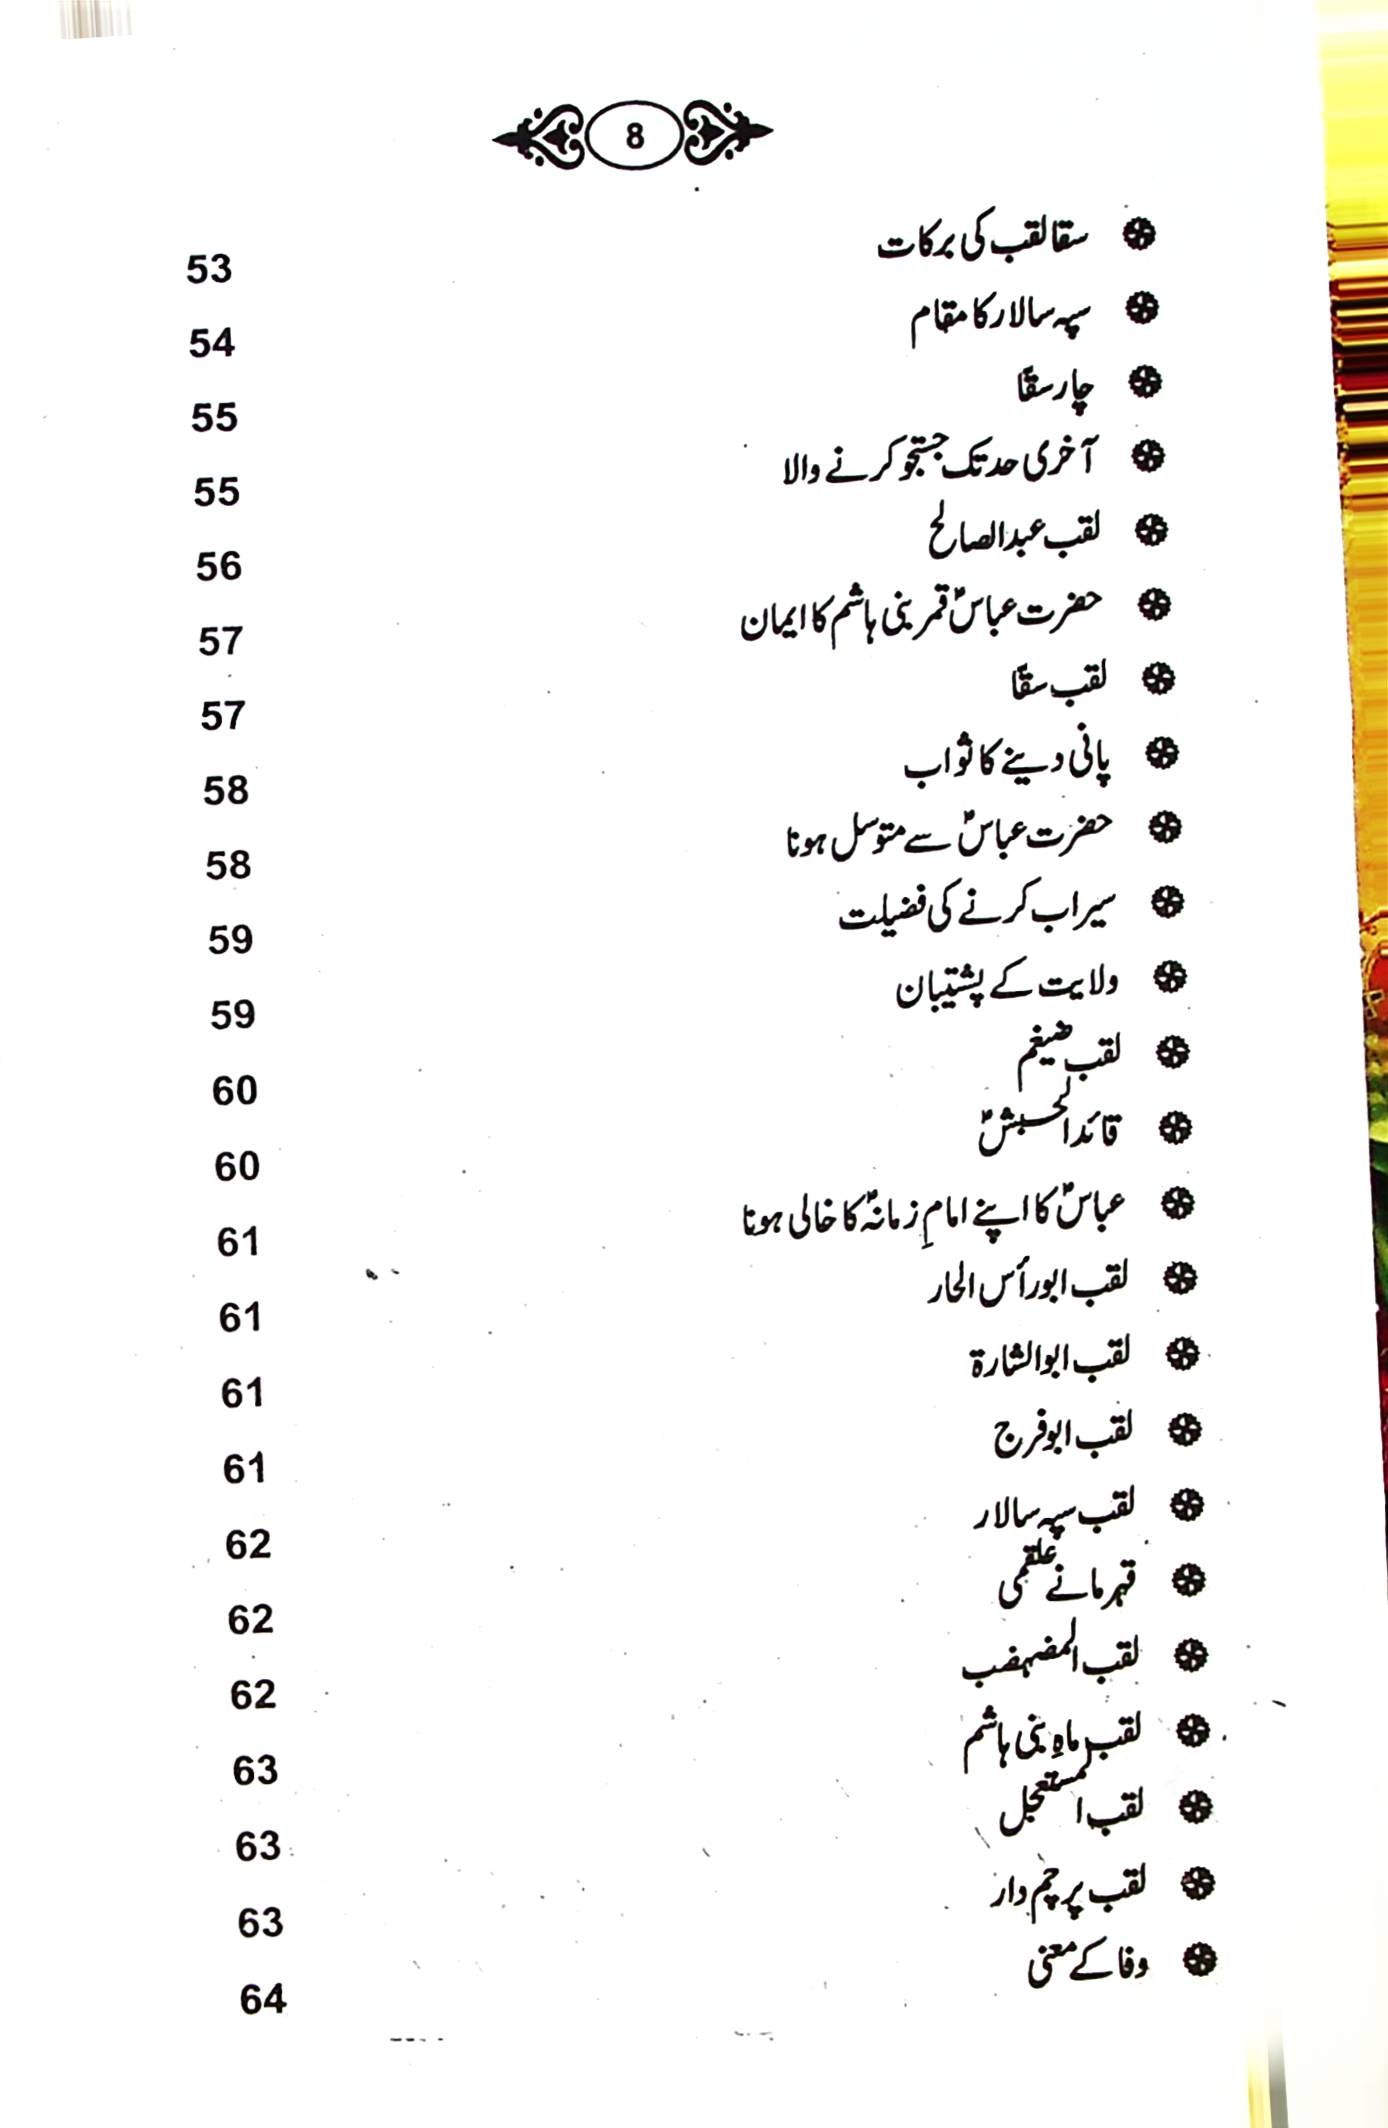 8
سقا لقب کی برکات 53
سپہ سالار کا مقام 54
چار سقّا 55
آخری حد تک جستجو کرنے والا 55
لقب عبدالصالح 56
حضرت عباسؑ قمر بنی ہاشم کا ایمان 57
لقب سقّا 57
پانی دینے کا ثواب 58
حضرت عباسؑ سے متوسل ہونا 58
سیراب کرنے کی فضیلت 59
ولایت کے پشتیبان 59
لقب ضیغم 60
قائد 60
عباسؑ کا اپنے امامِ زمانہؑ کا خالی ہونا 61
لقب ابو رأس الحار 61
لقب ابوالشارۃ 61
لقب ابو فرج 61
لقب سپہ سالار 62
قہرمانے علقمی 62
لقب 62
لقب ماہِ بنی ہاشم 63
لقب المستعجل 63
لقب پرچم دار 63
وفا کے معنی 64